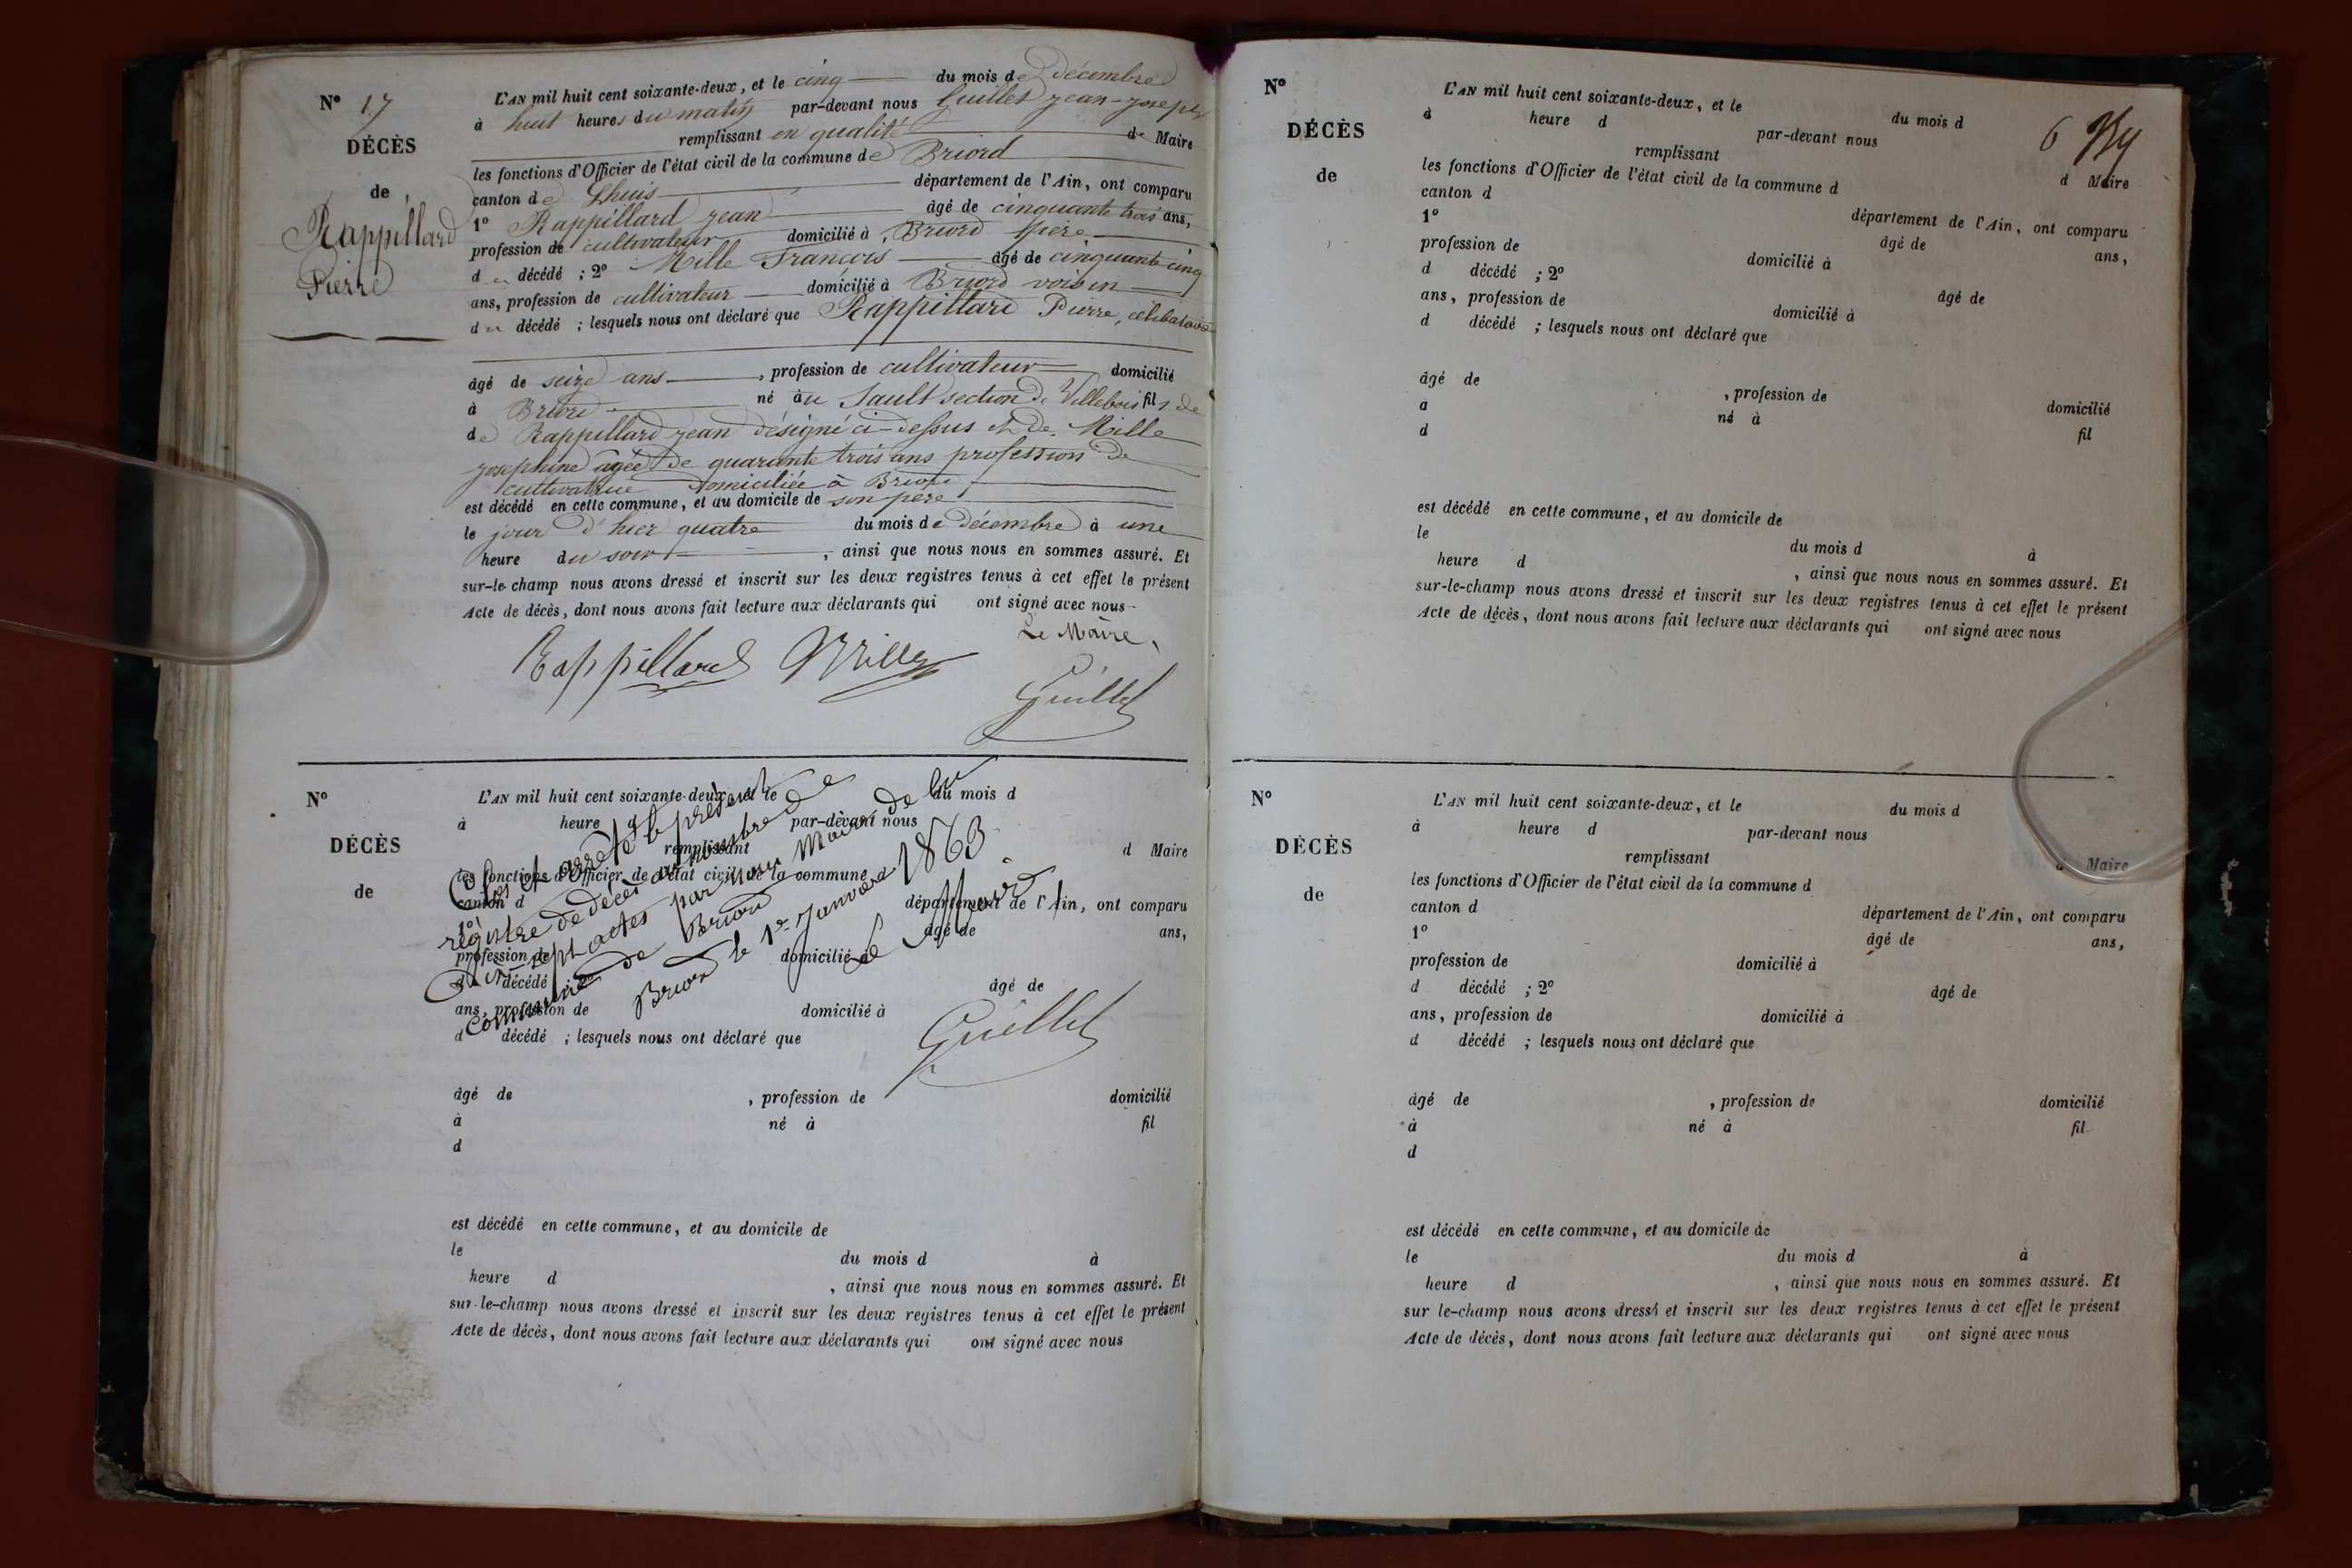 N° 17
DÉCÈS
de
Rappillard
Pierre
L'AN mil huit cent soixante-deux, et le cinq du mois de décembre
à huit heures du matin par-devant nous Guillet jean-joseph
remplissant en qualité de Maire
les fonctions d'Officier de l'état civil de la commune de Briord
canton de Lhuis département de l'Ain, ont comparu
1° Rappillard jean âgé de cinquante trois ans,
profession de cultivateur domicilié à Briord père
du décédé ; 2° Mille François âgé de cinquante cinq
ans, profession de cultivateur domicilié à Briord voisin
du décédé ; lesquels nous ont déclaré que Rappillard Pierre, célibataire
âgé de seize ans, profession de cultivateur domicilié
à Briord né au Sault section de Villebois fils de
de Rappillard jean désigné ci-dessus et de Mille
josephine âgée de quarante trois ans profession de
cultivatrice domiciliée à Briord
est décédé en cette commune, et au domicile de son père
le jour d'hier quatre du mois de décembre à une
heure du soir, ainsi que nous nous en sommes assuré. Et
sur-le-champ nous avons dressé et inscrit sur les deux registres tenus à cet effet le présent
Acte de décès, dont nous avons fait lecture aux déclarants qui ont signé avec nous
Le Maire,
Rappillard Mille
Guillet
N°
DÉCÈS
de
L'AN mil huit cent soixante-deux, et le du mois d
à heure d par-devant nous
remplissant d Maire
les fonctions d'Officier de l'état civil de la commune d
canton d département de l'Ain, ont comparu
1° âgé de ans,
profession de domicilié à
d décédé âgé de
ans, profession de domicilié à
d décédé ; lesquels nous ont déclaré que
Clos et arrêté le présent
registre de décès au nombre de
dix sept actes par nous Maire de la
commune de Briord
Briord le 1er janvier 1863
Le Maire
Guillet
âgé de , profession de domicilié
à né à fil
d
est décédé en cette commune, et au domicile de
le du mois d à
heure d , ainsi que nous nous en sommes assuré. Et
sur-le-champ nous avons dressé et inscrit sur les deux registres tenus à cet effet le présent
Acte de décès, dont nous avons fait lecture aux déclarants qui ont signé avec nous
N°
DÉCÈS
de
6
L'AN mil huit cent soixante-deux, et le du mois d
à heure d par-devant nous
remplissant d Maire
les fonctions d'Officier de l'état civil de la commune d
canton d département de l'Ain, ont comparu
1° âgé de ans,
profession de domicilié à
d décédé ; 2° âgé de
ans, profession de domicilié à
d décédé ; lesquels nous ont déclaré que
âgé de , profession de domicilié
a né à fil
d
est décédé en cette commune, et au domicile de
le du mois d à
heure d , ainsi que nous nous en sommes assuré. Et
sur-le-champ nous avons dressé et inscrit sur les deux registres tenus à cet effet le présent
Acte de décès, dont nous avons fait lecture aux déclarants qui ont signé avec nous
N°
DÉCÈS
de
L'AN mil huit cent soixante-deux, et le du mois d
à heure d par-devant nous
remplissant d Maire
les fonctions d'Officier de l'état civil de la commune d
canton d département de l'Ain, ont comparu
1° âgé de ans,
profession de domicilié à
d décédé ; 2° âgé de
ans, profession de domicilié à
d décédé ; lesquels nous ont déclaré que
âgé de , profession de domicilié
à né à fil
d
est décédé en cette commune, et au domicile de
le du mois d à
heure d , ainsi que nous nous en sommes assuré. Et
sur le-champ nous avons dressé et inscrit sur les deux registres tenus à cet effet le présent
Acte de décès, dont nous avons fait lecture aux déclarants qui ont signé avec nous